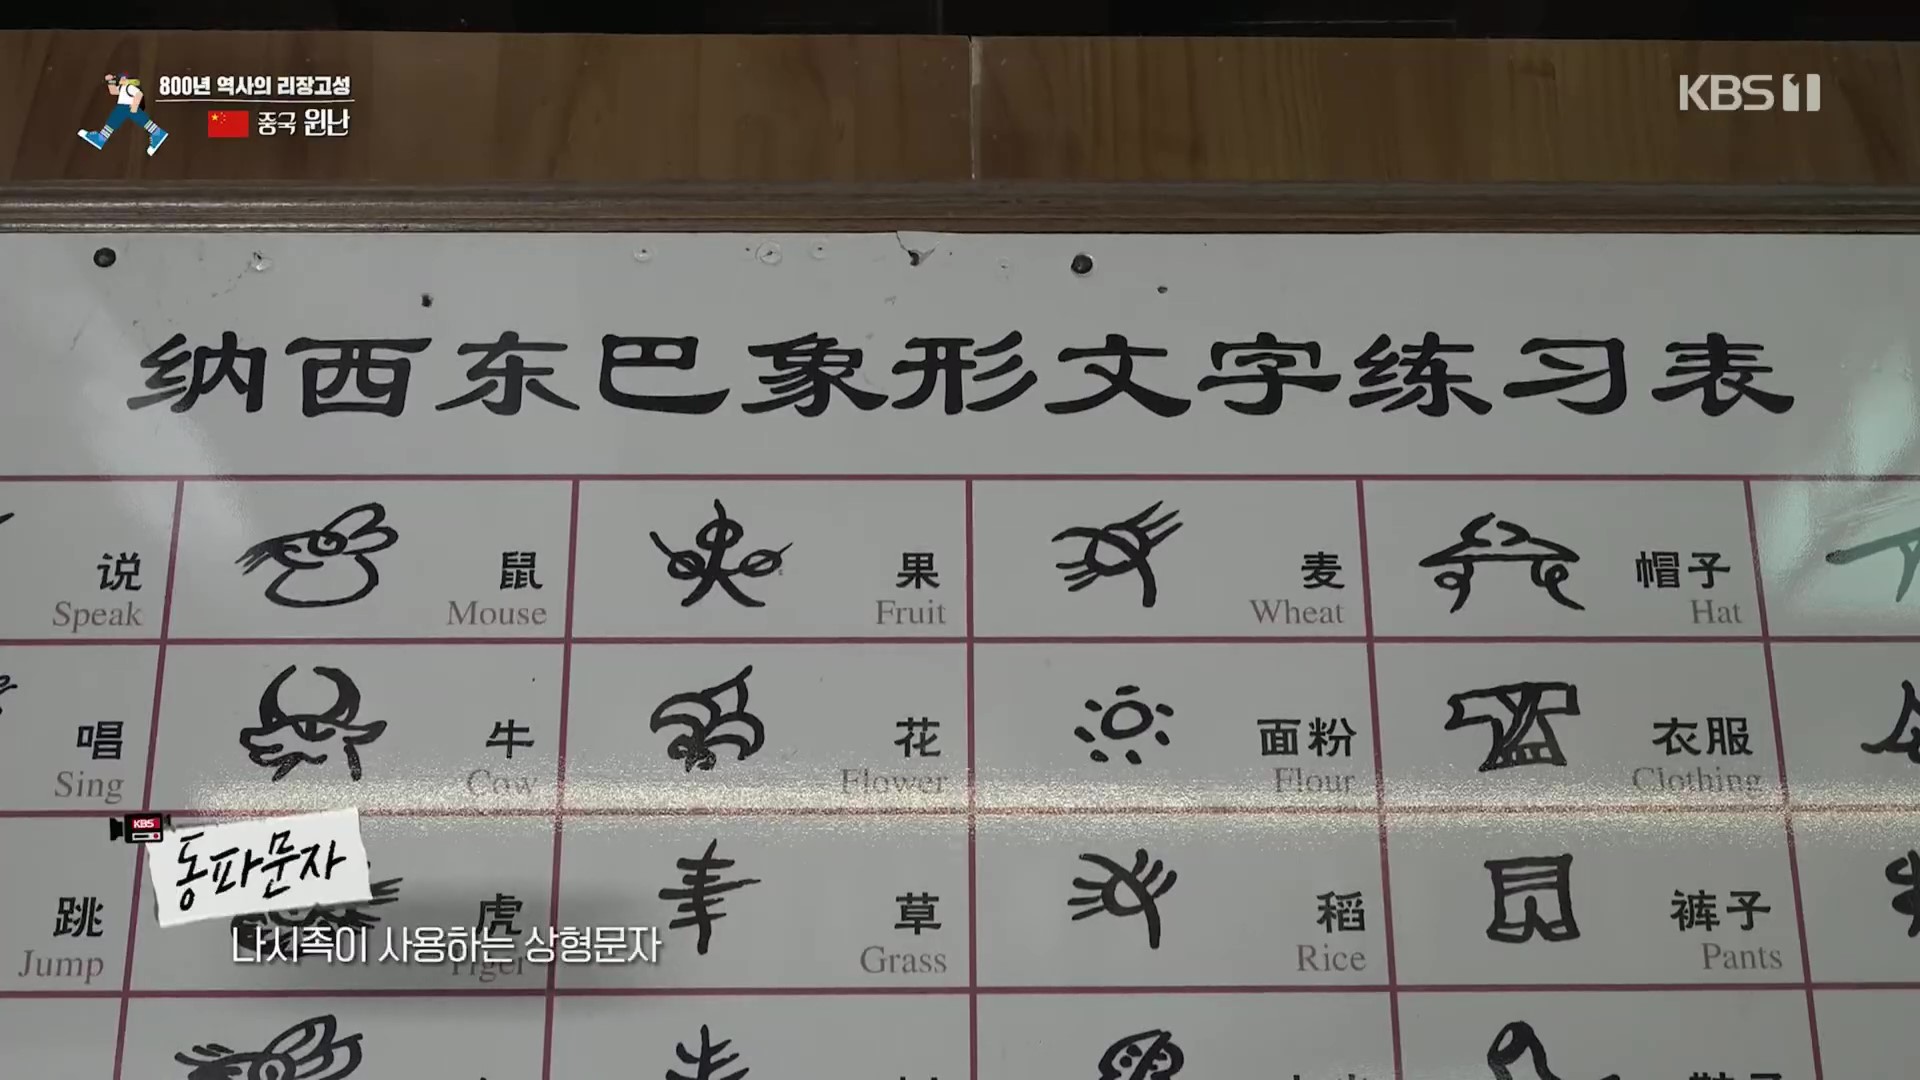 800년 역사의 리장고성
중국 윈난
KBS 1
纳西东巴象形文字练习表
说 鼠 果 麦 帽子
Speak Mouse Fruit Wheat Hat
唱 牛 花 面粉 衣服
Sing Cow Flower Flour Clothing
KBS
동파문자
跳 虎 草 稻 裤子
Jump Tiger Grass Rice Pants
나시족이 사용하는 상형문자